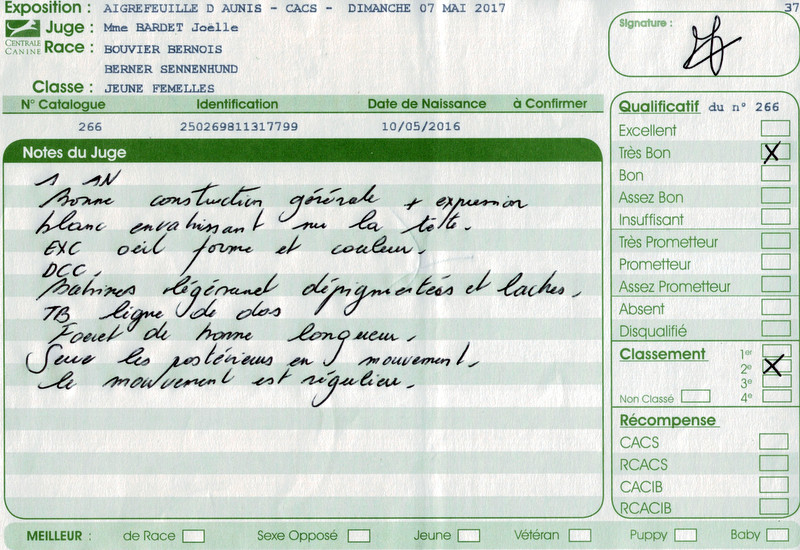 Exposition : AIGREFEUILLE D AUNIS - CACS - DIMANCHE 07 MAI 2017
37
CENTRALE CANINE
Juge : Mme BARDET Joëlle
Race : BOUVIER BERNOIS
BERNER SENNENHUND
Classe : JEUNE FEMELLES
Signature :
N° Catalogue Identification Date de Naissance à Confirmer
266 250269811317799 10/05/2016
Notes du Juge
1 AN
Bonne construction générale + expression
blanc envahissant sur la tête.
EXC oeil forme et couleur.
DCC.
Babines légérement dépigmentées et laches.
TB ligne de dos
Fouet de bonne longueur.
Serre les postérieurs en mouvement.
le mouvement est régulier.
Qualificatif du n° 266
Excellent
Très Bon X
Bon
Assez Bon
Insuffisant
Très Prometteur
Prometteur
Assez Prometteur
Absent
Disqualifié
Classement 1er
2e X
3e
Non Classé 4e
Récompense
CACS
RCACS
CACIB
RCACIB
MEILLEUR : de Race Sexe Opposé Jeune Vétéran Puppy Baby